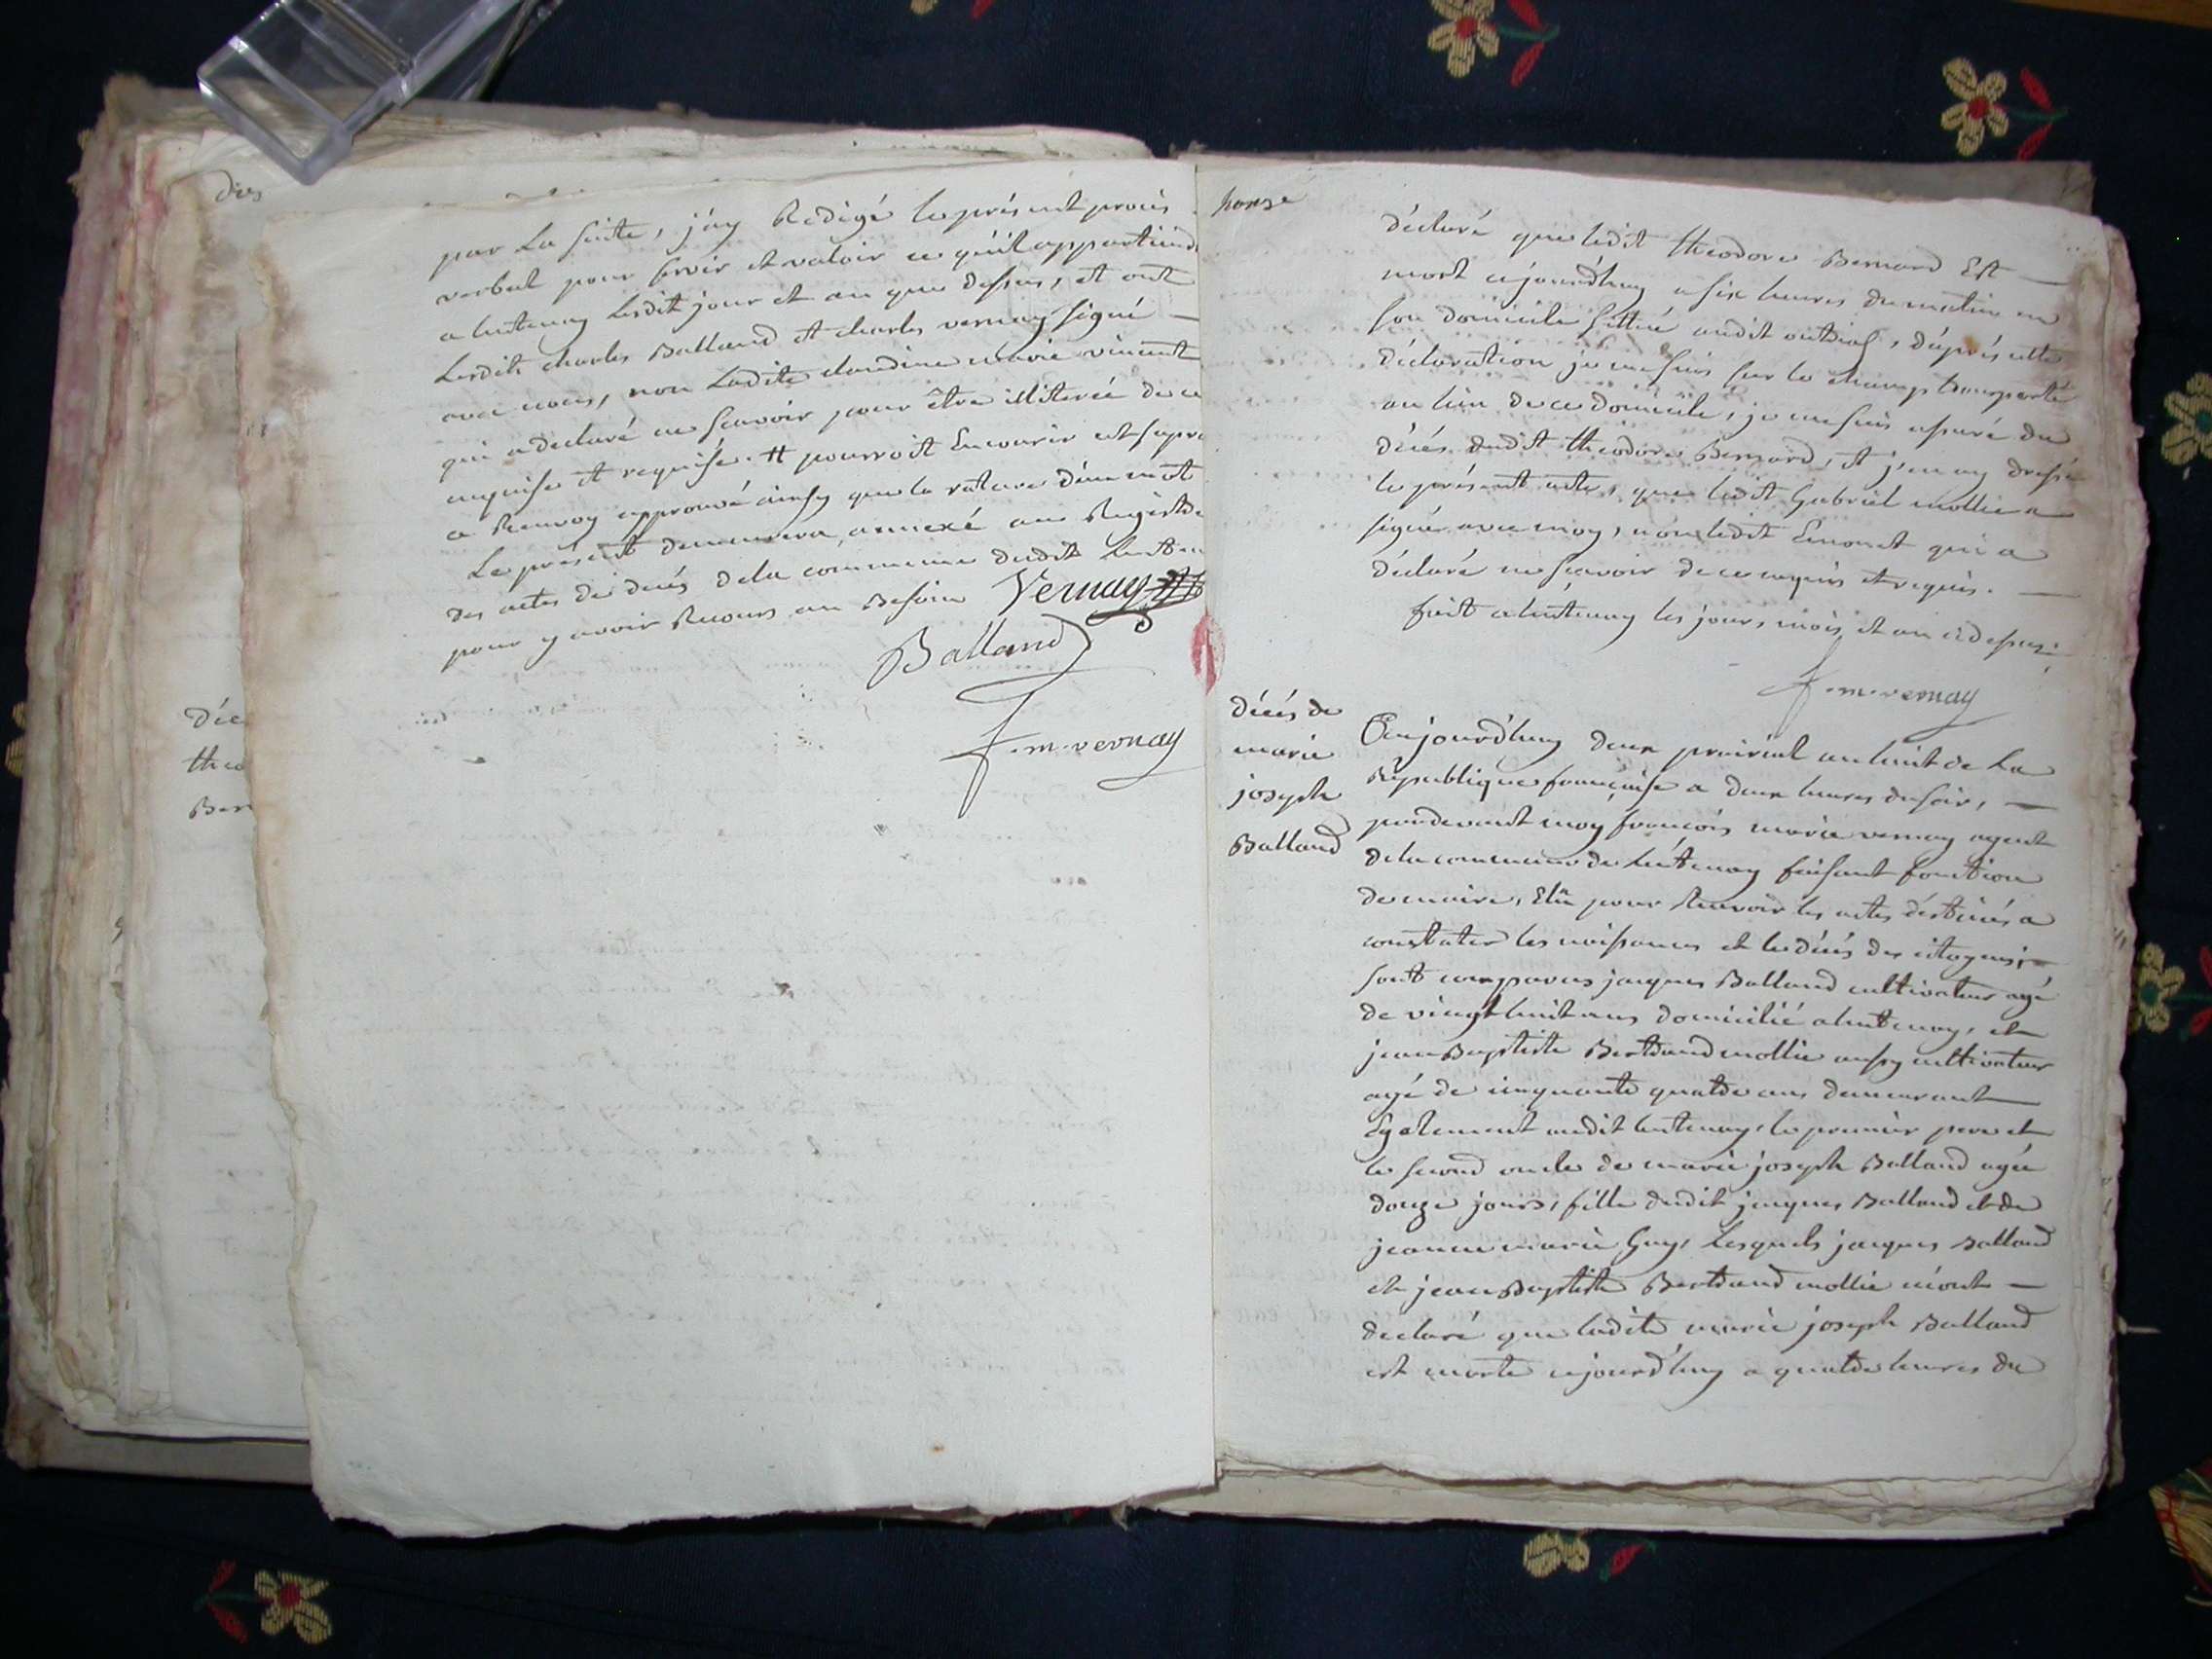 dix
déc
theo
Bern
par La suite, j'ay Redigé le présent procès
verbal pour servir et valoir ce qu'il appartiend
a lentenay lesdit jour et an que dessus, et ont
Lesdits charles Balland et charles vernay signé —
avec nous, non Ladite claudine marie vincent
qui a declaré ne scavoir pour être illiterée de ce
enquise et requise. # pourroit Encourir est sapro
a Renvoy approuvé ainsy que la rature d'un mot
Le présent demeurera annexé au Registre
des actes de décés dela commune dudit lenten
pour y avoir Recours au Besoin Vernay
Balland
f. m. vernay
honze
déclaré que ledit theodore Bernard Est —
mort cejourd'huy a six heures du matin en
son domicile sittué audit outriaz, d'après cette
déclaration je me suis sur le champ transporté
au lieu de ce domicile, je me suis assuré du
décés dudit théodore Bernard, et j'en ay dressé
le présent acte, que ledit Gabriel mollie a
signé avec moy, non ledit Emonet qui a
déclaré ne scavoir de ce enquis et requis. —
fait a lentenay les jour, mois et an cidessus.
f. m. vernay
décés de
marie
joseph
Balland
Cejourd'huy deux prairial an huit de La
République française a deux heures du soir, —
pardevant moy francois marie vernay agent
dela commune de lentenay faisant fonction
de maire, Elu pour Recevoir les actes déstinés a
constater les naissances et le décés des citoyens, —
sont comparus jacques Balland cultivateur agé
de vingt huit ans domicilié a lentenay, et
jean Baptiste Bertrand mollie aussy cultivateur
agé de cinquante quatre ans demeurant —
Egalement audit lentenay, le premier pere et
le second oncle de marie joseph Balland agée
douze jours, fille dudit jacques Balland et de
jeanne marie Guy, Lesquels jacques Balland
et jean Baptiste Bertrand mollie m'ont —
declaré que ladite marie joseph Balland
est morte cejourd'huy a quatre heures du